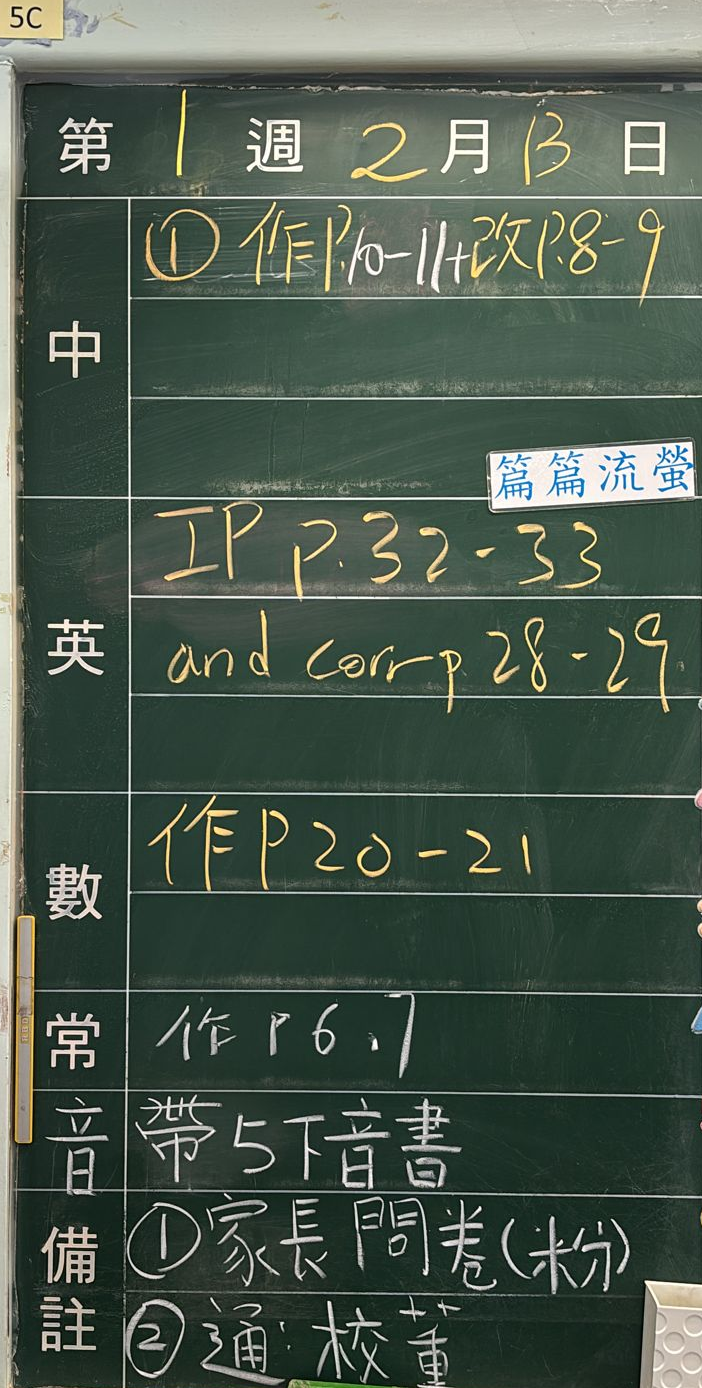 5C
第 1 週 2 月 13 日
中
① 作P.10-11+改P.8-9
篇篇流螢
英
IP p.32-33
and corr p 28-29
數
作P20-21
常
作P6.7
音
帶5下音書
備註
①家長問卷(粉)
②通:校董